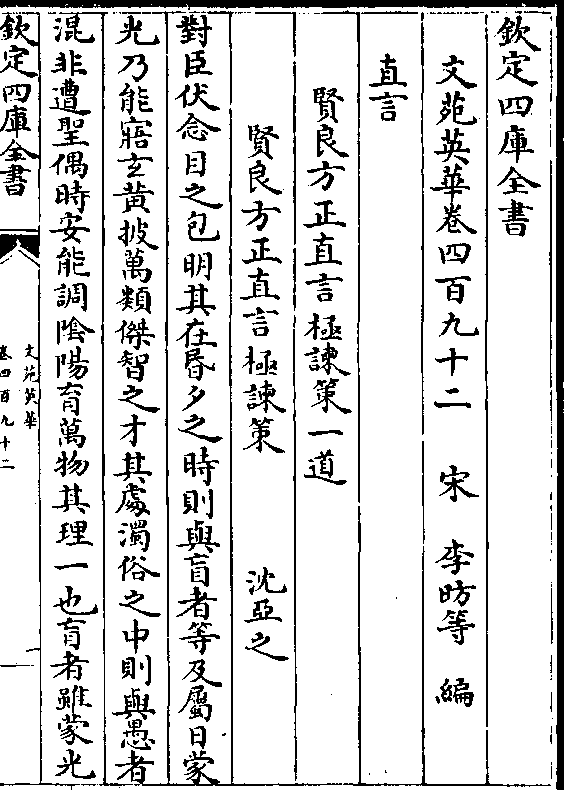 欽定四庫全書
文苑英華卷四百九十二　宋　李昉等　編
直言
賢良方正直言極諫策一道
賢良方正直言極諫策　沈亞之
對臣伏念目之包明其在昬夕之時則與盲者等及屬日蒙
光乃能寤玄黃披萬類傑智之才其處濁俗之中則與愚者
混非遭聖偶時安能調陰陽育萬物其理一也盲者雖蒙光
欽定四庫全書
文苑英華
卷四百九十二
一